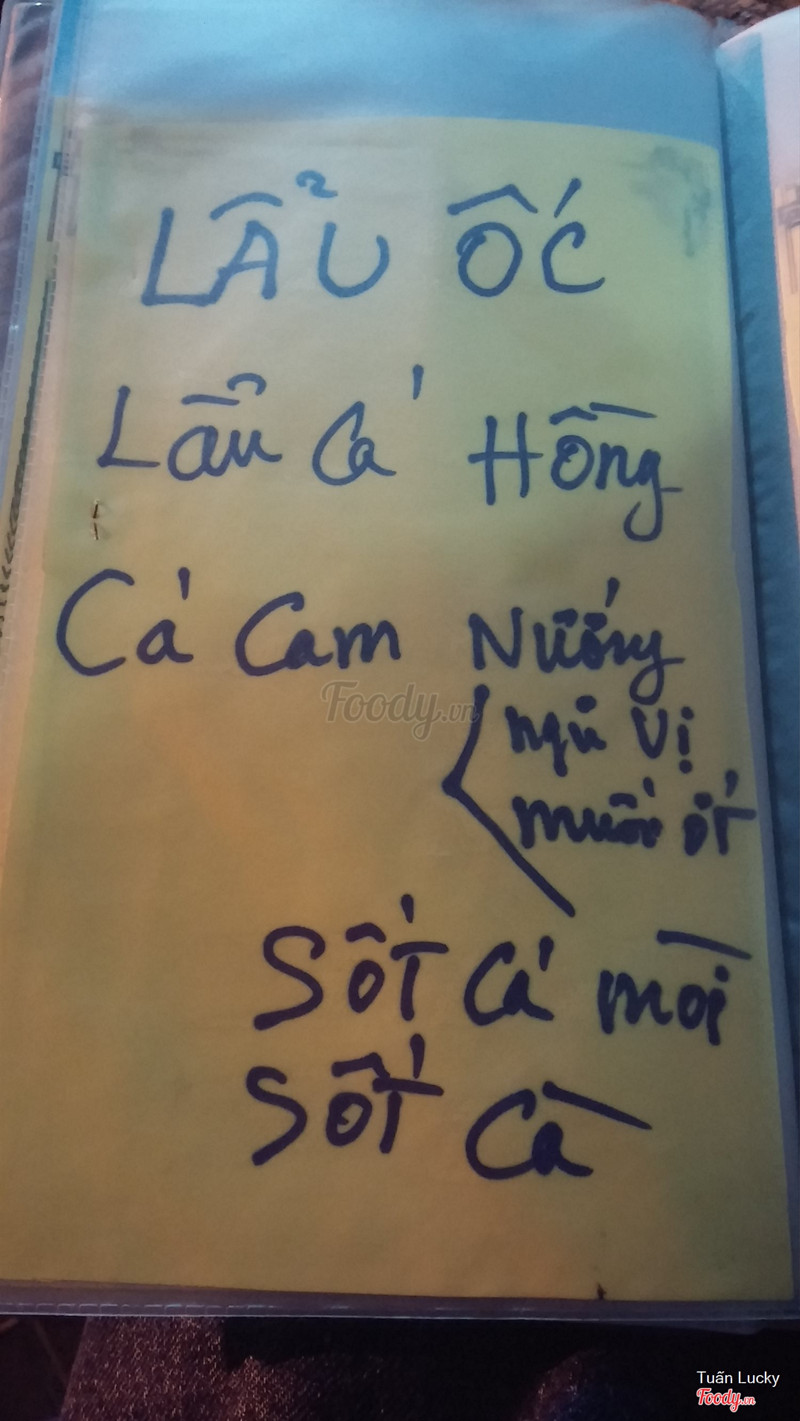 LẨU ỐC
Lẩu Cá Hồng
Cá Cam Nướng
Foody.vn
ngũ Vị
muối ớt
SỐT Cá mòi
SỐT Cà
Tuấn Lucky
Foody.vn